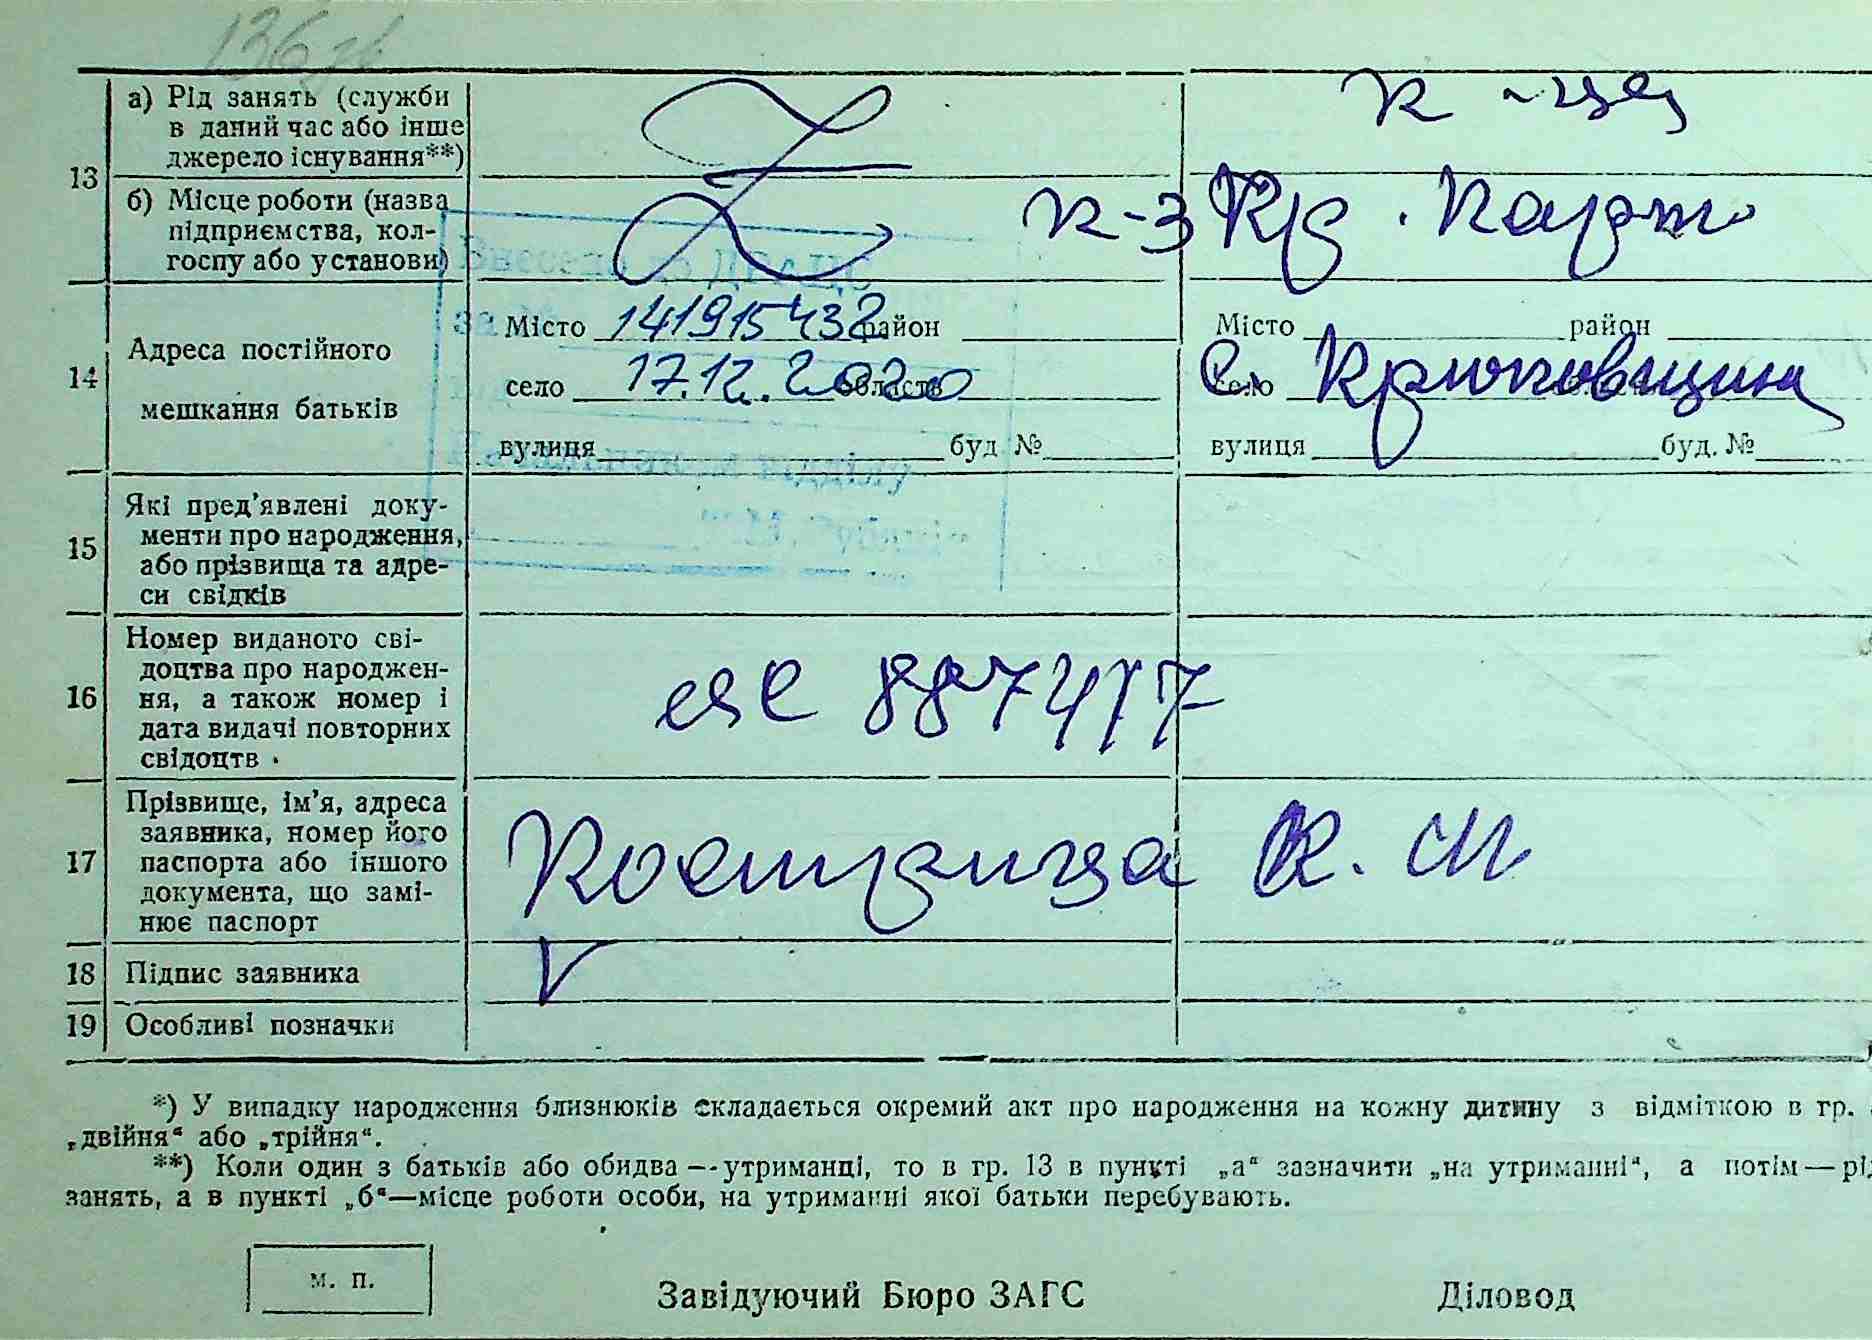 136зв
а) Рід занять (служби
в даний час або інше
джерело існування**)
к-ця
13
б) Місце роботи (назва
підприємства, кол-
госпу або установи)
к-з Кр. Парт
14
Адреса постійного
мешкання батьків
Місто район
141915432
село область
17.12.2020
вулиця буд №
Місто район
село
с. Крюковщина
вулиця буд. №
Внесено до ДРАЦС
за №
відділу
15
Які пред'явлені доку-
менти про народження,
або прізвища та адре-
си свідків
16
Номер виданого сві-
доцтва про народжен-
ня, а також номер і
дата видачі повторних
свідоцтв
887477
17
Прізвище, ім'я, адреса
заявника, номер його
паспорта або іншого
документа, що замі-
нює паспорт
Костриця К. М
18 Підпис заявника
V
19 Особливі позначки
*) У випадку народження близнюків складається окремий акт про народження на кожну дитину з відміткою в гр.
„двійня“ або „трійня“.
**) Коли один з батьків або обидва—утриманці, то в гр. 13 в пункті „а“ зазначити „на утриманні“, а потім — рід
занять, а в пункті „б“—місце роботи особи, на утриманні якої батьки перебувають.
м. п.
Завідуючий Бюро ЗАГС Діловод